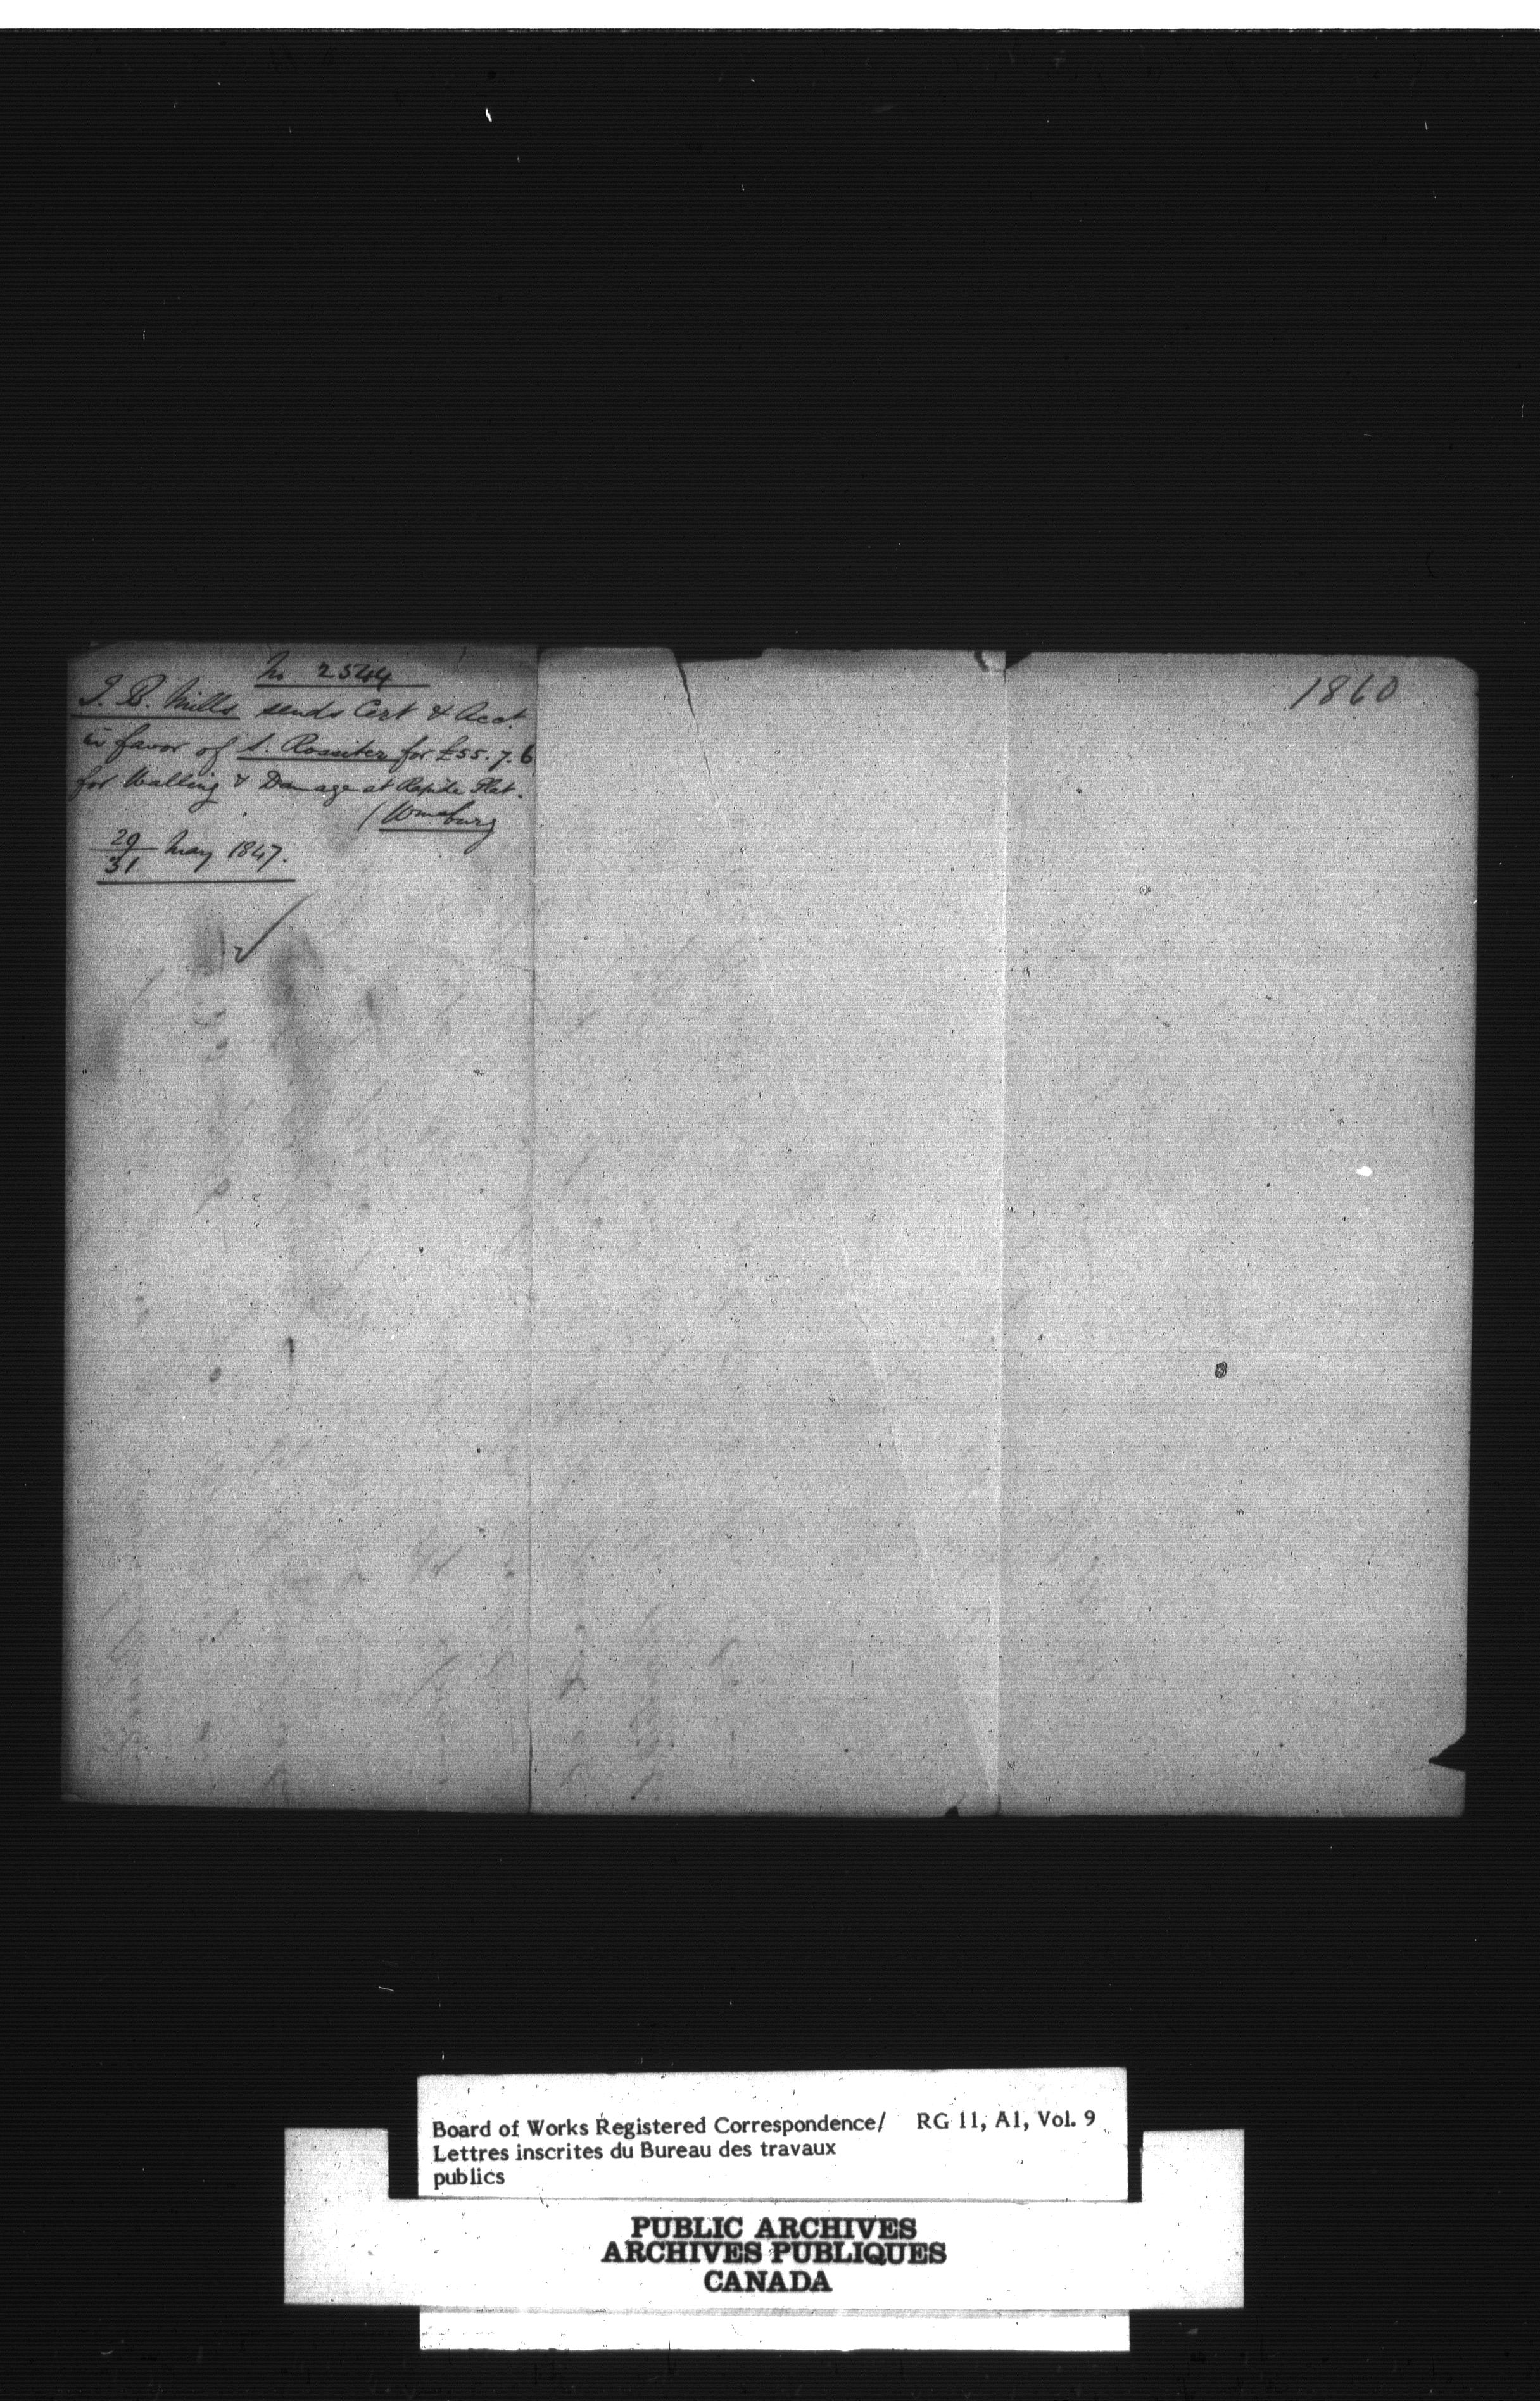 No. 2544
J. B. Mills sends Cert & Acct.
in favor of S. Rossiter for £55.7.6
for Walling & Damage at Rapide Plat.
(Wmsburg
29/31 May 1847.
1860
Board of Works Registered Correspondence/ RG 11, A1, Vol. 9
Lettres inscrites du Bureau des travaux
publics
PUBLIC ARCHIVES
ARCHIVES PUBLIQUES
CANADA